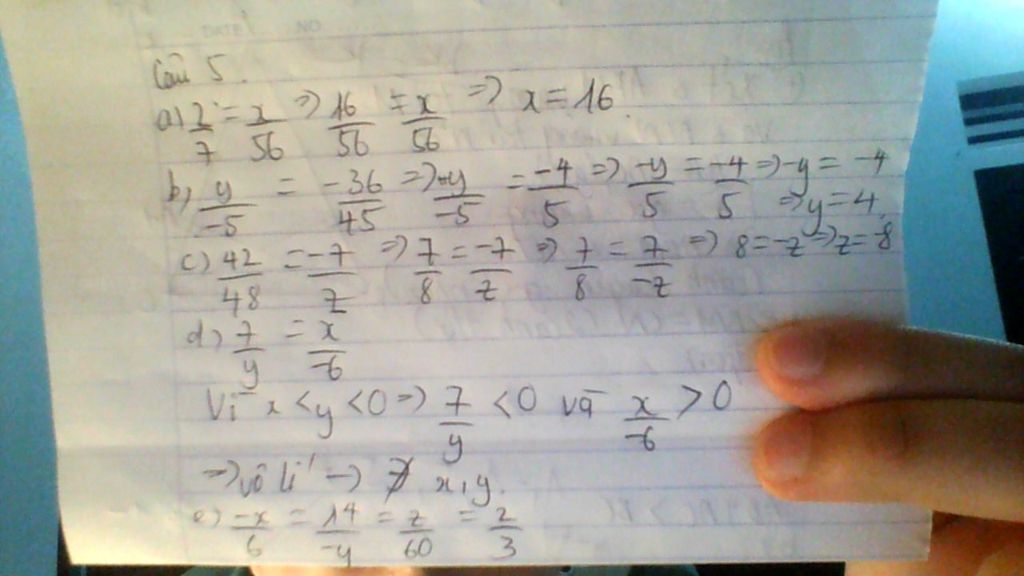 DATE NO
Câu 5.
a) 2/7 = x/56 => 16/56 = x/56 => x = 16.
b, y/-5 = -36/45 => y/-5 = -4/5 => -y/5 = -4/5 => -y = -4
=> y = 4.
c) 42/48 = -7/z => 7/8 = -7/z => 7/8 = 7/-z => 8 = -z => z = -8
d) 7/y = x/-6
Vì x < y < 0 => 7/y < 0 và x/-6 > 0
=> vô lí -> ∄ x, y.
e) -x/6 = 14/-y = z/60 = 2/3